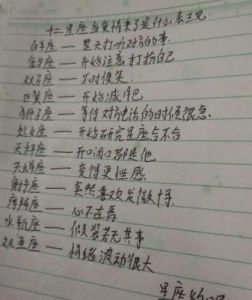 十二星座当爱情来了是什么表现
白羊座 — 整天打听对方的事.
金牛座 — 开始注意打扮自己
双子座 — 不时傻笑.
巨蟹座 — 开始减肥
狮子座 — 等待对方电话的时候很急.
处女座 — 开始研究星座合不合
天秤座 — 开口闭口都是他
天蝎座 — 变得更性感.
射手座 — 突然喜欢发微博
摩羯座 — 心不在焉
水瓶座 — 假装若无其事
双鱼座 — 情绪波动很大
星座